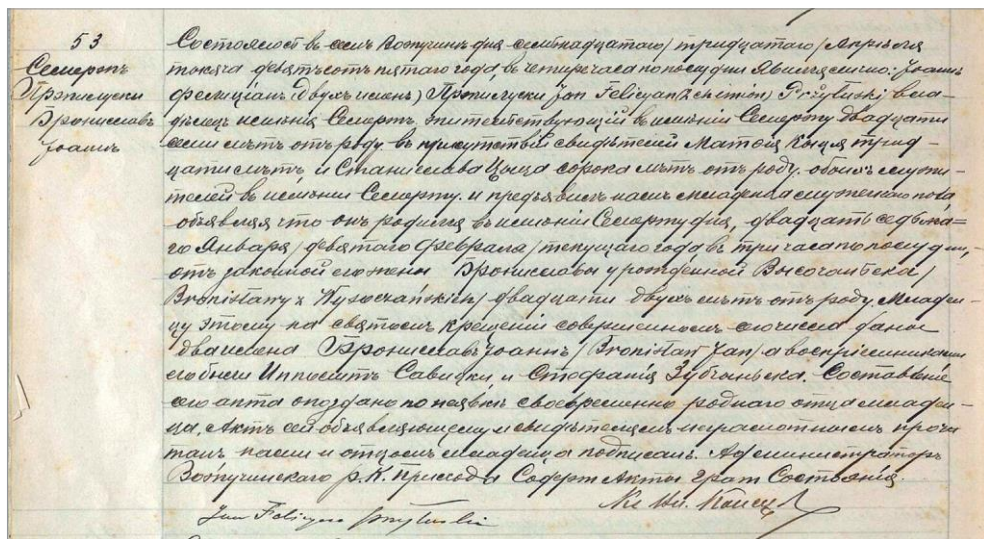 53
Семеропъ
Пржилуски
Брониславъ
Іоаннъ
Состоялось въ селѣ Вопучинъ дня семьнадцатаго / тридцатаго / Апрѣля
тысяча девятьсотъ пятаго года, въ четыре часа по полудни Явился лично: Іоаннъ
Фелиціанъ (двухъ именъ) Пржилуски / Jan Felicyan (2ch imion) Przyłuski вла-
дѣлецъ имѣнія Семерть, жительствующій въ имѣніи Семерту двадцати
семи лѣтъ отъ роду въ присутствіи свидѣтелей Матвѣя трид-
цати лѣтъ и Станислава сорока лѣтъ отъ роду обоихъ служи-
телей въ имѣніи Семерту. и предъявилъ намъ младенца мужескаго пола
объявляя что онъ родился въ имѣніи Семерту дня, двадцать седьма=
го Января / девятаго Февраля / текущаго года въ три часа по полудни,
отъ законной его жены Брониславы урожденной Височанъска /
Bronisławy z Wysoczańskich / двадцати двухъ лѣтъ отъ роду. Младен-
цу этому на святомъ крещеніи совершенномъ сего числа даны
два имена Брониславъ Іоаннъ / Bronisław Jan / а воспріемниками
его были Ипполитъ Савицки, и Стефанія. Составленіе
сего акта опоздано по неявкѣ своевременно роднаго отца младен-
ца. Актъ сей объявляющему и свидѣтелямъ неграмотнымъ прочи
танъ нами и отцомъ младенца подписанъ. Администраторъ
Вопучинскаго Р. К. Прихода Содерж Акты Граж Состоянія.
Jan Felicyan Przyłuski